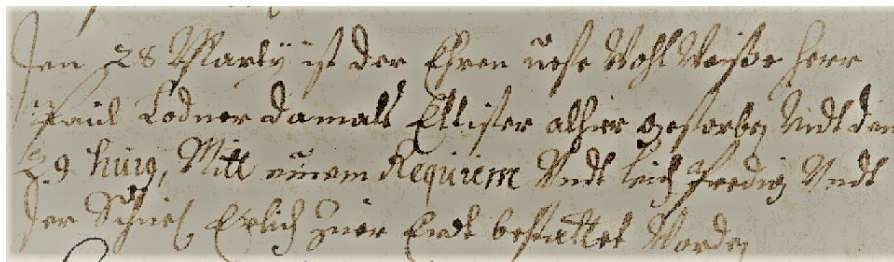 Den 28 Marty ist der Ehren veste Wohl Weiße herr
Paul Lodner damals Elltister alhier gestorben Undt den
29 huig, Mitt einem Requiem Undt leich Predig Undt
der Schuel Erlich Zuer Erdt bestattet Worden